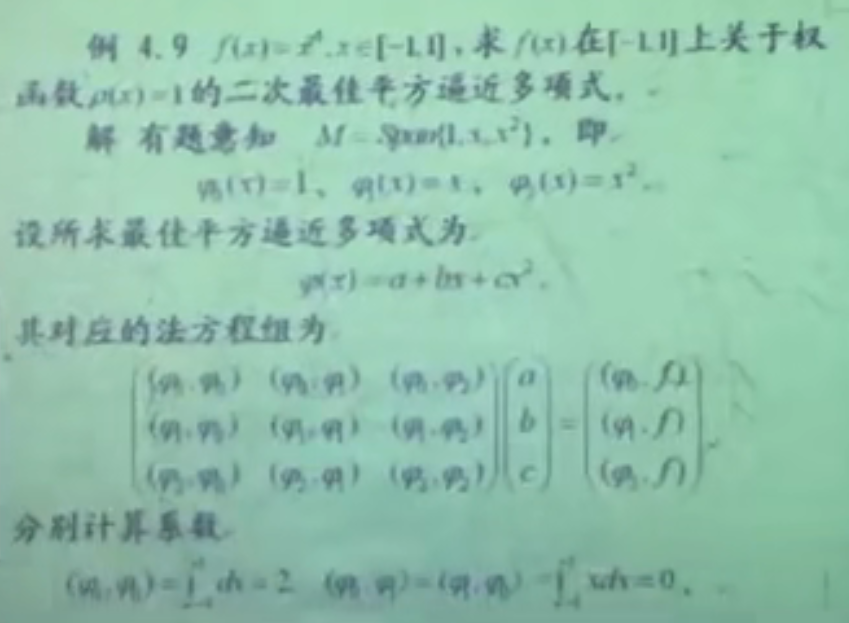 例 4.9 f(x)=x⁴,x∈[-1,1],求f(x)在[-1,1]上关于权
函数ρ(x)=1的二次最佳平方逼近多项式。
解 有题意知 M=Span{1,x,x²},即
φ₀(x)=1、φ₁(x)=x,φ₂(x)=x²。
设所求最佳平方逼近多项式为
φ(x)=a+bx+cx²。
其对应的法方程组为
(φ₀,φ₀) (φ₀,φ₁) (φ₀,φ₂) a (φ₀,f)
(φ₁,φ₀) (φ₁,φ₁) (φ₁,φ₂) b = (φ₁,f)
(φ₂,φ₀) (φ₂,φ₁) (φ₂,φ₂) c (φ₂,f)
分别计算系数
(φ₀,φ₀)=∫₋₁¹dx=2 (φ₀,φ₁)=(φ₁,φ₀)=∫₋₁¹xdx=0,